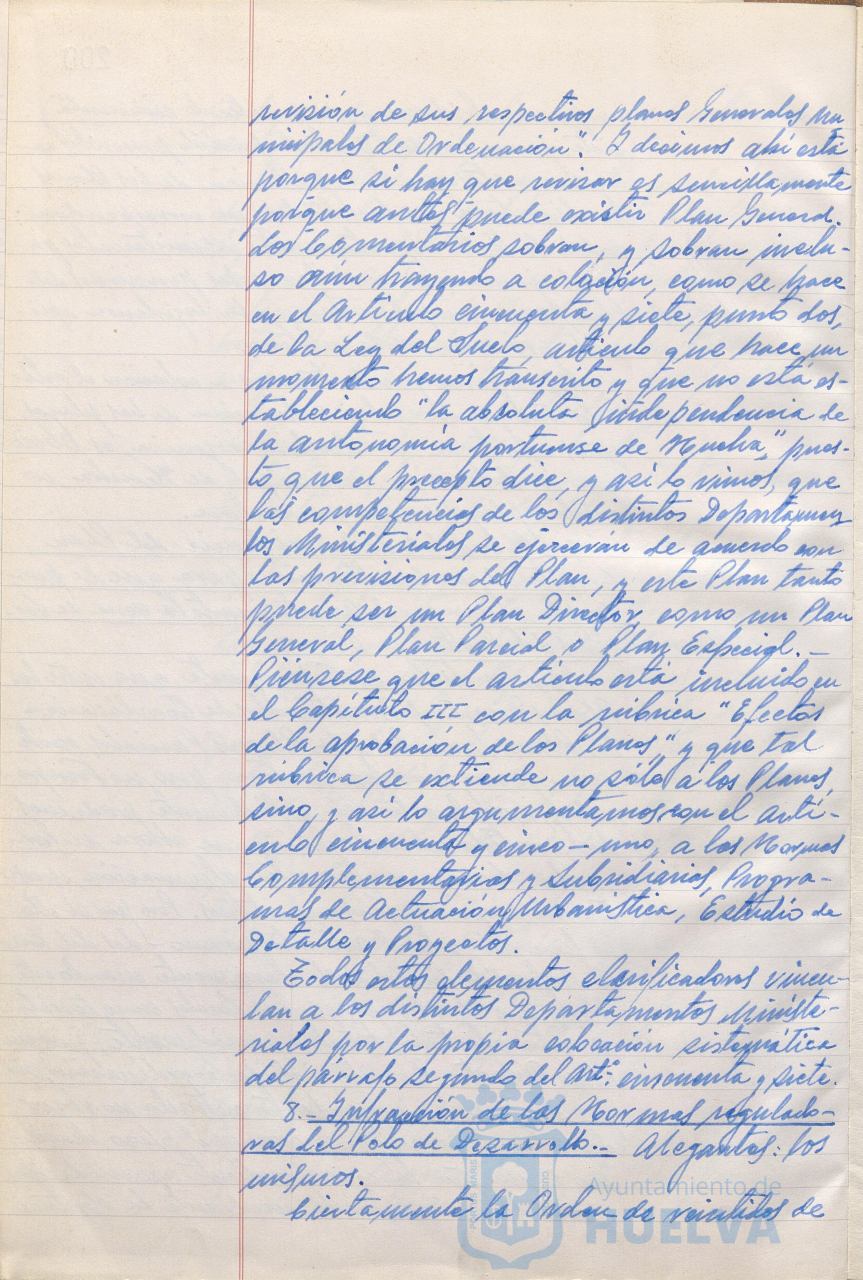 revisión de sus respectivos planes Generales Mu
nicipales de Ordenación". Y decimos ahí está
porque si hay que revisar es sencillamente
porque antes puede existir Plan General.
Los Comentarios sobran, y sobran inclu-
so aún trayendo a colación, como se hace
en el Artículo cincuenta y siete, punto dos,
de la Ley del Suelo, artículo que hace un
momento hemos transcrito y que no está es-
tableciendo "la absoluta independencia de
la autonomía portuense de Huelva", pues-
to que el precepto dice, y así lo vimos, que
las competencias de los distintos Departamen
tos Ministeriales se ejercerán de acuerdo con
las previsiones del Plan, y este Plan tanto
puede ser un Plan Director, como un Plan
General, Plan Parcial o Plan Especial.-
Piénsese que el artículo está incluido en
el Capítulo III con la rúbrica "Efectos
de la aprobación de los Planes", y que tal
rúbrica se extiende no sólo a los Planes,
sino, y así lo argumentamos con el artí-
culo cincuenta y cinco-uno, a las Normas
Complementarias y Subsidiarias, Progra-
mas de Actuación Urbanística, Estudio de
Detalle y Proyectos.
Todos estos elementos clarificadores vincu-
lan a los distintos Departamentos Ministe-
riales por la propia colocación sistemática
del párrafo segundo del artº. cincuenta y siete.
8.- Infracción de las Normas regulado-
ras del Polo de Desarrollo.- Alegantes: los
mismos.
Ciertamente la Orden de veintidos de
Ayuntamiento de
HUELVA